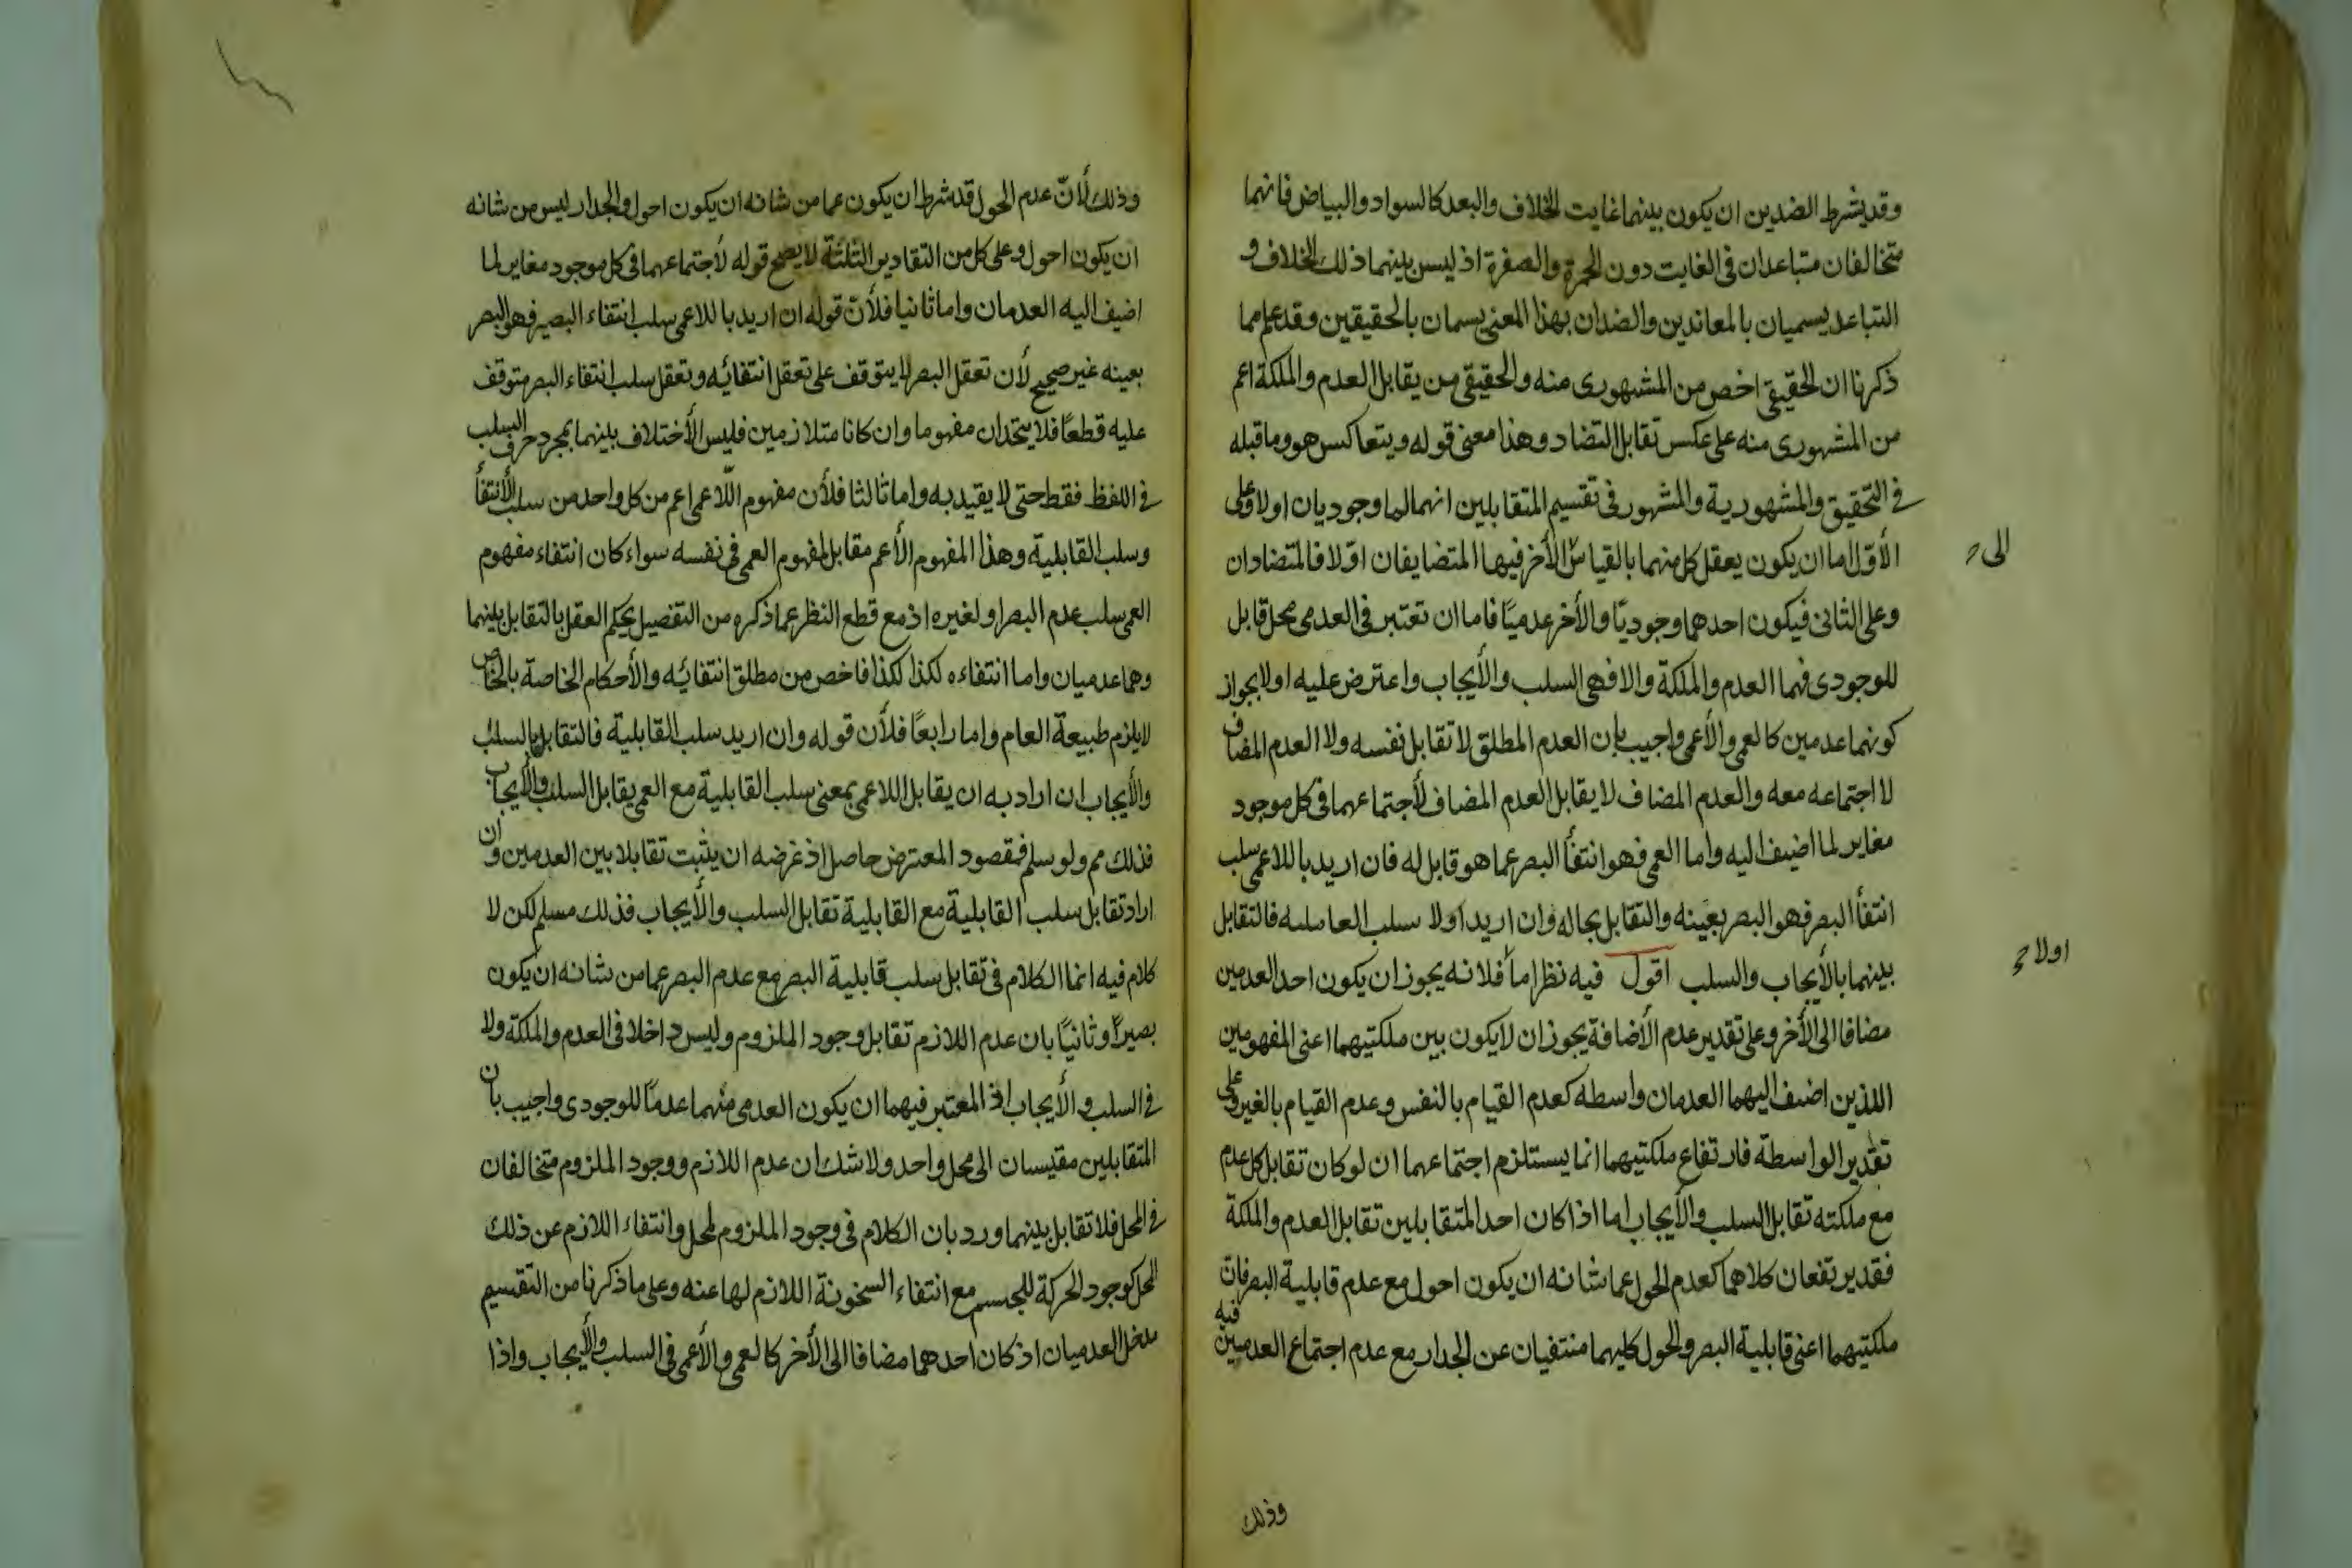 وقد يشرط الضدين ان يكون بينهما غايت الخلاف والبعد كالسواد والبياض فانهما
متخالفان متباعدان فى الغايت دون الحمرة والصفرة اذ ليس بينهما ذلك الخلاف و
التباعد يسميان بالمعاندين والضدان بهذا المعنى يسمان بالحقيقين وقد علم مما
ذكرنا ان الحقيقى اخص من المشهورى منه والحقيقى من يقابل العدم والملكة اعم
من المشهورى منه على عكس تقابل التضاد وهذا معنى قوله ويتعاكس هو وما قبله
فى التحقيق والمشهورية والمشهور فى تقسيم المتقابلين انهما اما وجوديان اولا وعلى
الأوّل اما ان يكون يعقل كل منهما بالقياس الأخر فيها المتضايفان اوّلا فالمتضادان
الى
وعلى الثانى فيكون احدهما وجوديًا والأخر عدميًا فاما ان تعتبر فى العدمى محل قابل
للوجودى فهما العدم والملكة والا فهى السلب والأيجاب واعترض عليه اولا بجواز
كونهما عدمين كالعمى والأعمى واجيب بان العدم المطلق لا تقابل نفسه ولا العدم المضاف
لا اجتماعه معه والعدم المضاف لا يقابل العدم المضاف لأجتماعهما فى كل موجود
مغاير لما اضيف اليه واما العمى فهو انتفأ البصر عما هو قابل له فان اريد باللاعمى سلب
انتفأ البصر فهو البصر بعينه والتقابل بحاله وان اريد اولا سلب فالتقابل
اولا
بينهما بالأيجاب والسلب اقول فيه نظر اما فلانه يجوز ان يكون احد العدمين
مضافا الى الأخر وعلى تقدير عدم الأضافة يجوز ان لا يكون بين ملكتيهما اعنى المفهومين
اللذين اضيف اليهما العدمان واسطه كعدم القيام بالنفس وعدم القيام بالغير وعلى
تقدير الواسطة فارتفاع ملكتيهما انما يستلزم اجتماعهما ان لو كان تقابل كل عدم
مع ملكته تقابل السلب والأيجاب اما اذا كان احد المتقابلين تقابل العدم والملكة
فقد يرتفعان كلاهما كعدم الحول عما شانه ان يكون احول مع عدم قابلية البصر فان
ملكتيهما اعنى قابلية البصر والحول كليهما منتفيان عن الجدار مع عدم اجتماع العدمين فيه
وذلك
وذلك لأنّ عدم الحول قد شرط ان يكون عما من شانه ان يكون احول والجدار ليس من شانه
ان يكون احول وعلى كل من التقادير الثلثة لا يصح قوله لأجتماعهما فى كل موجود مغاير لما
اضيف اليه العدمان واما ثانيا فلأن قوله ان اريد باللاعمى سلب انتفاء البصير فهو البصر
بعينه غير صحيح لأن تعقل البصر لا يتوقف على تعقل انتفائه وتعقل سلب انتفاء البصر متوقف
عليه قطعًا فلا يتحدان مفهوما وان كانا متلازمين فليس الأختلاف بينهما بمجرد حرف السلب
فى اللفظ فقط حتى لا يقيد به واما ثالثا فلأن مفهوم اللّاعمى اعم من كل واحد من سلب الأنتفأ
وسلب القابلية وهذا المفهوم الأعم مقابل لمفهوم العمى فى نفسه سواء كان انتفاء مفهوم
العمى سلب عدم البصر او لغيره اذ مع قطع النظر عما ذكره من التفصيل يحكم العقل بالتقابل بينهما
وهما عدميان واما انتفاءه لكذا لكذا فاخص من مطلق انتفائه والأحكام الخاصة بالخاص
لا يلزم طبيعة العام واما رابعًا فلأن قوله وان اريد سلب القابلية فالتقابل بالسلب
والأيجاب ان اراد به ان يقابل اللاعمى بمعنى سلب القابلية مع العمى يقابل السلب والأيجاب
فذلك مم ولو سلم فمقصود المعترض حاصل اذ غرضه ان يثبت تقابلا بين العدمين وان
اراد تقابل سلب القابلية مع القابلية تقابل السلب والأيجاب فذلك مسلم لكن لا
كلام فيه انما الكلام فى تقابل سلب قابلية البصر مع عدم البصر عما من شانه ان يكون
بصيرًا وثانيًا بان عدم اللازم تقابل وجود الملزوم وليس داخلا فى العدم والملكة ولا
فى السلب والأيجاب اذ المعتبر فيهما ان يكون العدمى منهما عدمًا للوجودى واجيب بان
المتقابلين مقيسان الى محل واحد ولا شك ان عدم اللازم ووجود الملزوم متخالفان
فى المحل فلا تقابل بينهما ورد بان الكلام فى وجود الملزوم لمحل وانتفاء اللازم عن ذلك
المحل كوجود الحركة للجسم مع انتفاء السخونة اللازم لها عنه وعلى ما ذكرنا من التقسيم
العدميان اذ كان احدهما مضافا الى الأخر كالعمى والأعمى فى السلب والأيجاب واذا